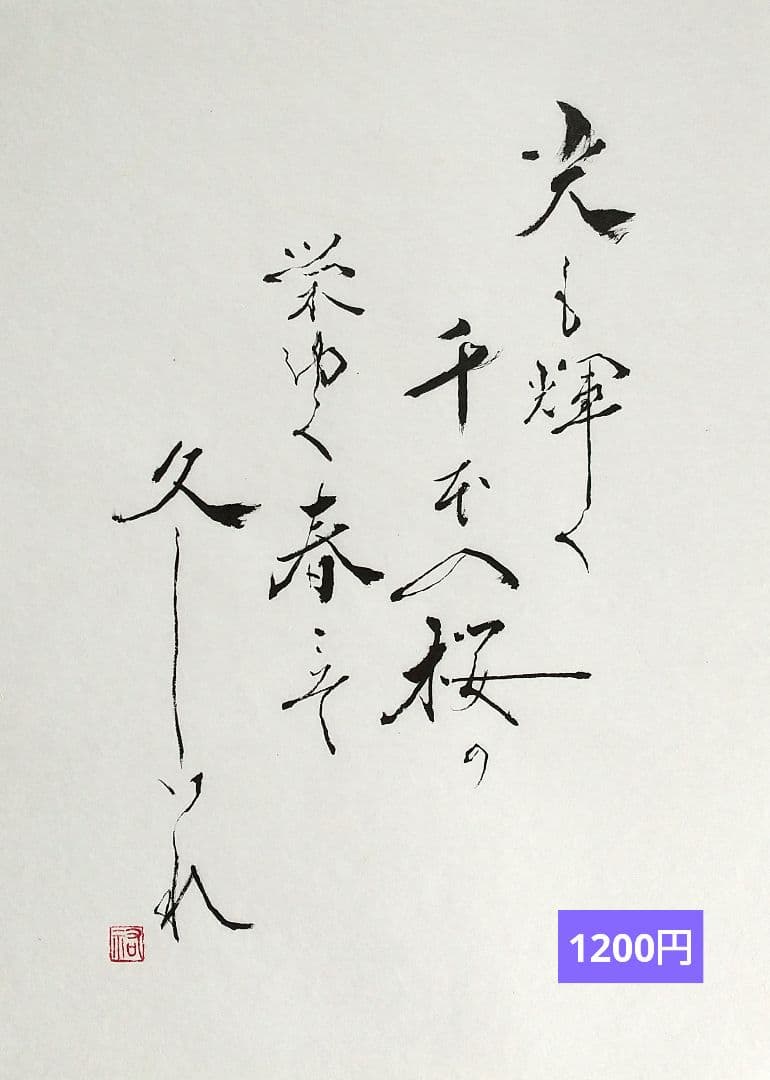 光も輝く
千本の桜の
栄ゆく春こそ
久しけれ
1200円